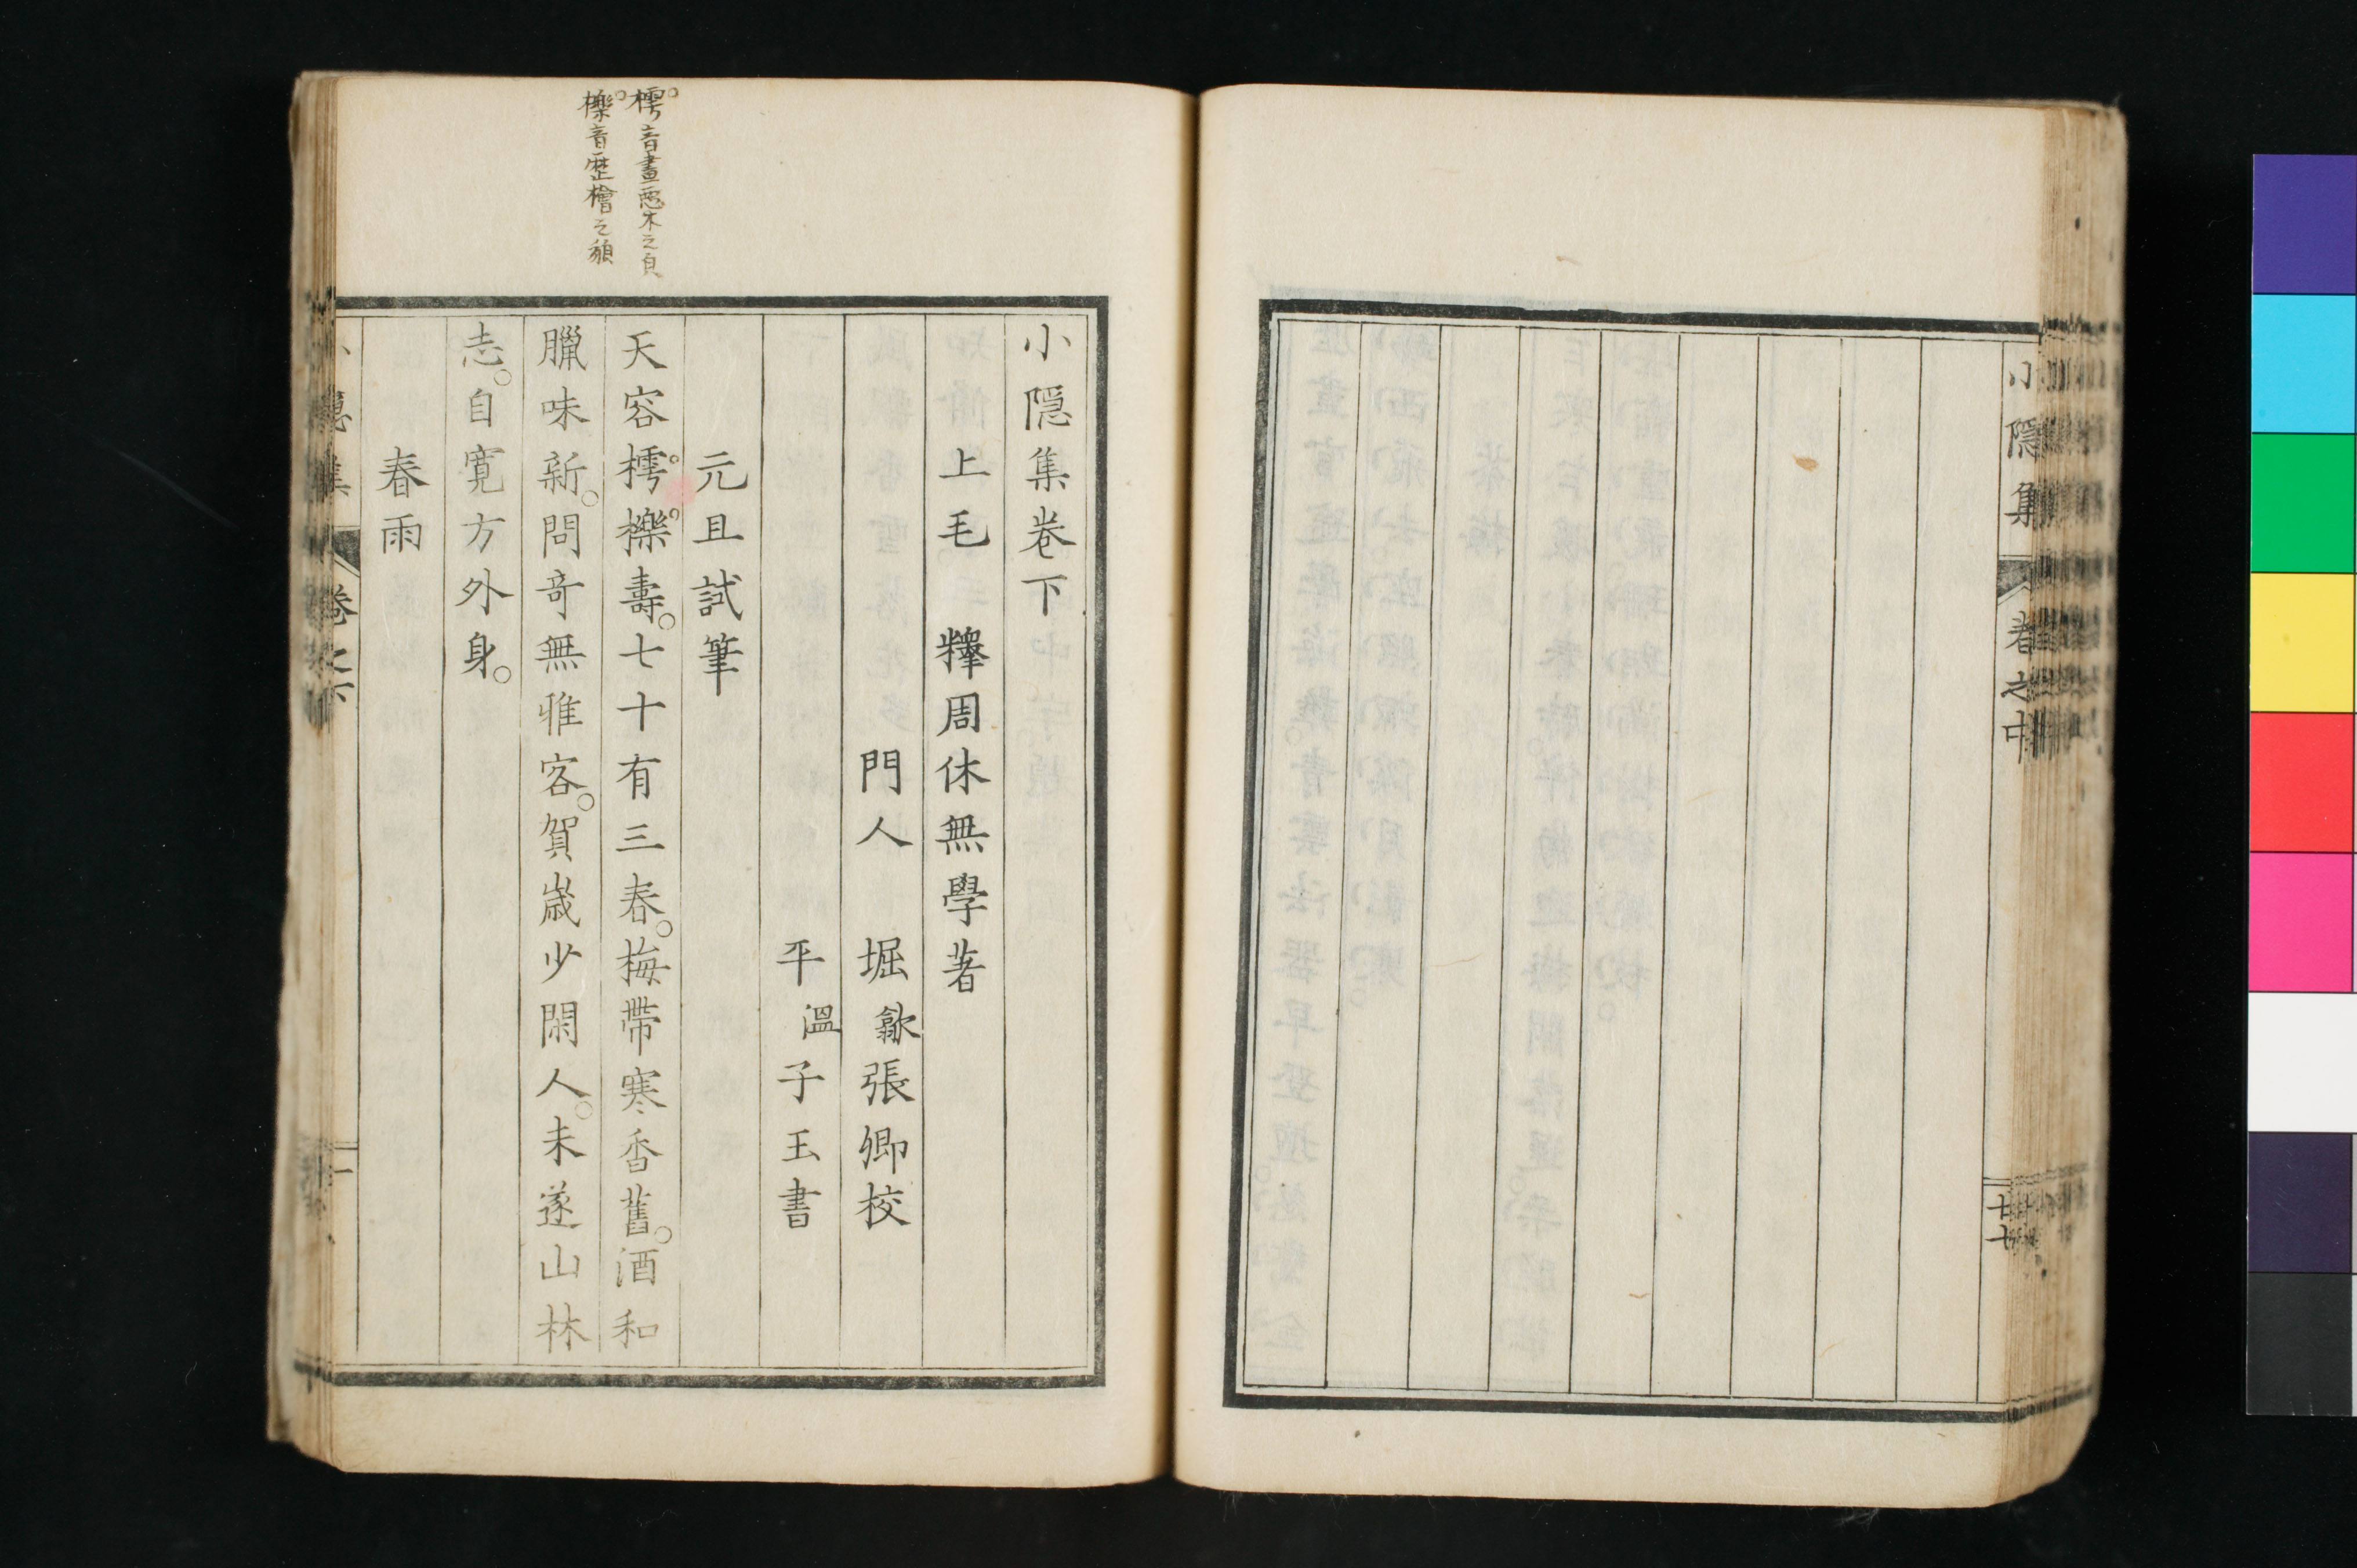 小隱集
卷之中
廿七
樗音畫惡木之皃
櫟音歷檜之貌
小隱集卷下
上毛　釋周休無學著
門人　堀歙張卿校
平溫子玉書
元旦試筆
天容樗櫟壽。七十有三春。梅帶寒香舊。酒和
臘味新。問竒無雅客。賀歲少閑人。未遂山林
志。自寛方外身。
春雨
小隱集
卷之下
一